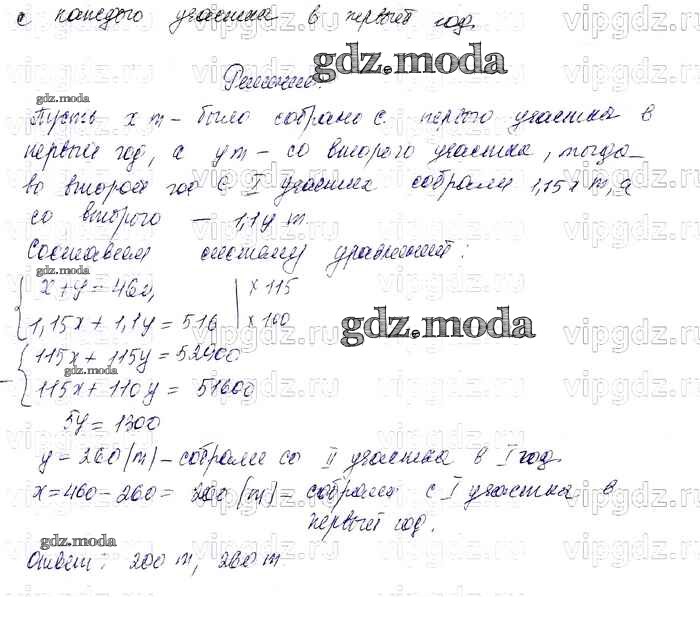 с каждого участка в первый год.
gdz.moda
Решение:
gdz.moda
Пусть x т – было собрано с первого участка в
первый год, а y т – со второго участка, тогда
во второй год с I участка собрали 1,15x т, а
со второго – 1,1y т.
Составим систему уравнений:
gdz.moda
x + y = 460, | × 115
1,15x + 1,1y = 516 | × 100
gdz.moda
115x + 115y = 52900
gdz.moda
– 115x + 110y = 51600
5y = 1300
y = 260 (т) – собрали со II участка в I год.
x = 460 – 260 = 200 (т) – собрали с I участка в
первый год.
gdz.moda
Ответ: 200 т, 260 т.
vipgdz.ru